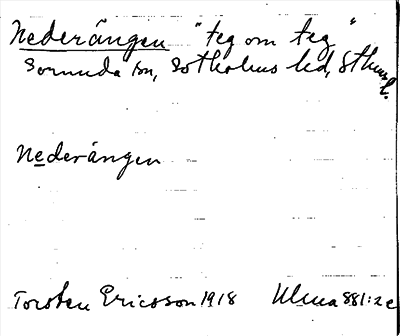 Nederängen "teg om teg"
Sorunda sn, Sotholms hd, Sthms l.
Nederängen
Torsten Ericsson 1918 Ulma 881:2c